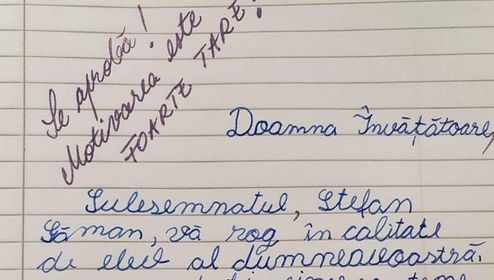 Se aprobă!
Motivarea este
FOARTE TARE!
Doamna Învățătoare,
Sulesemnatul, Ștefan
Găman, vă rog în calitate
de elev al dumneavoastră.